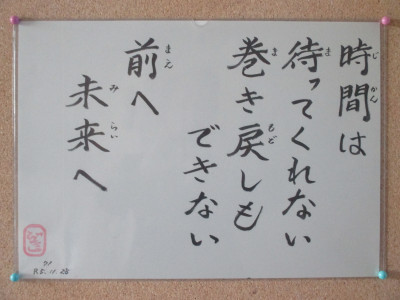 時間は
待ってくれない
巻き戻しも
できない
前へ
未来へ
R5.11.28